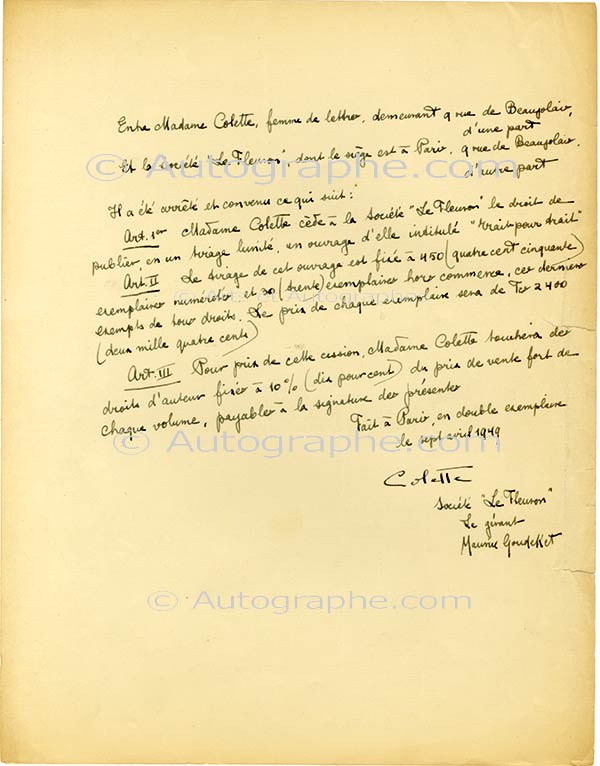 Entre Madame Colette, femme de lettres, demeurant 9 rue de Beaujolais,
d'une part
Et la société "Le Fleuron", dont le siège est à Paris, 9 rue de Beaujolais,
d'autre part
© Autographe.com
Il a été arrêté et convenu ce qui suit :
Art. 1er Madame Colette cède à la Société "Le Fleuron" le droit de
publier en un tirage limité, un ouvrage d'elle intitulé "trait pour trait"
Art. II Le tirage de cet ouvrage est fixé à 450 (quatre cent cinquante)
exemplaires numérotés, et 30 (trente) exemplaires hors commerce, ces derniers
exempts de tous droits. Le prix de chaque exemplaire sera de Frs 2400
(deux mille quatre cents)
Art. III Pour prix de cette cession, Madame Colette touchera des
droits d'auteur fixés à 10% (dix pour cent) du prix de vente fort de
chaque volume, payables à la signature des présentes
Fait à Paris, en double exemplaire
© Autographe.com
le sept avril 1949
Colette
Société "Le Fleuron"
Le gérant
Maurice Goudeket
© Autographe.com